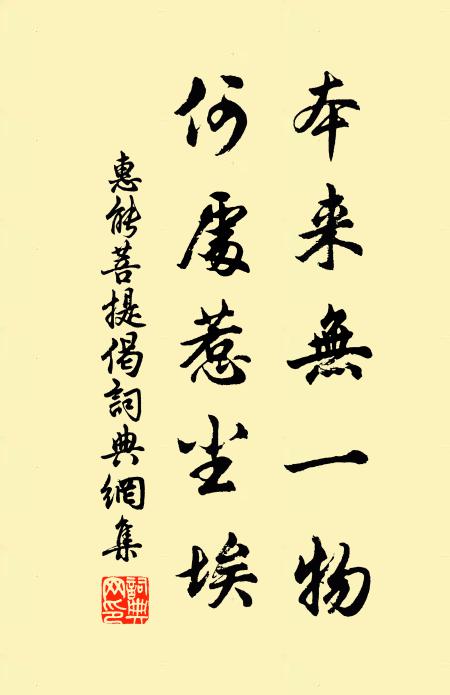 本来無一物
何處惹尘埃
惠能菩提偈詞典網集
詞典
网印